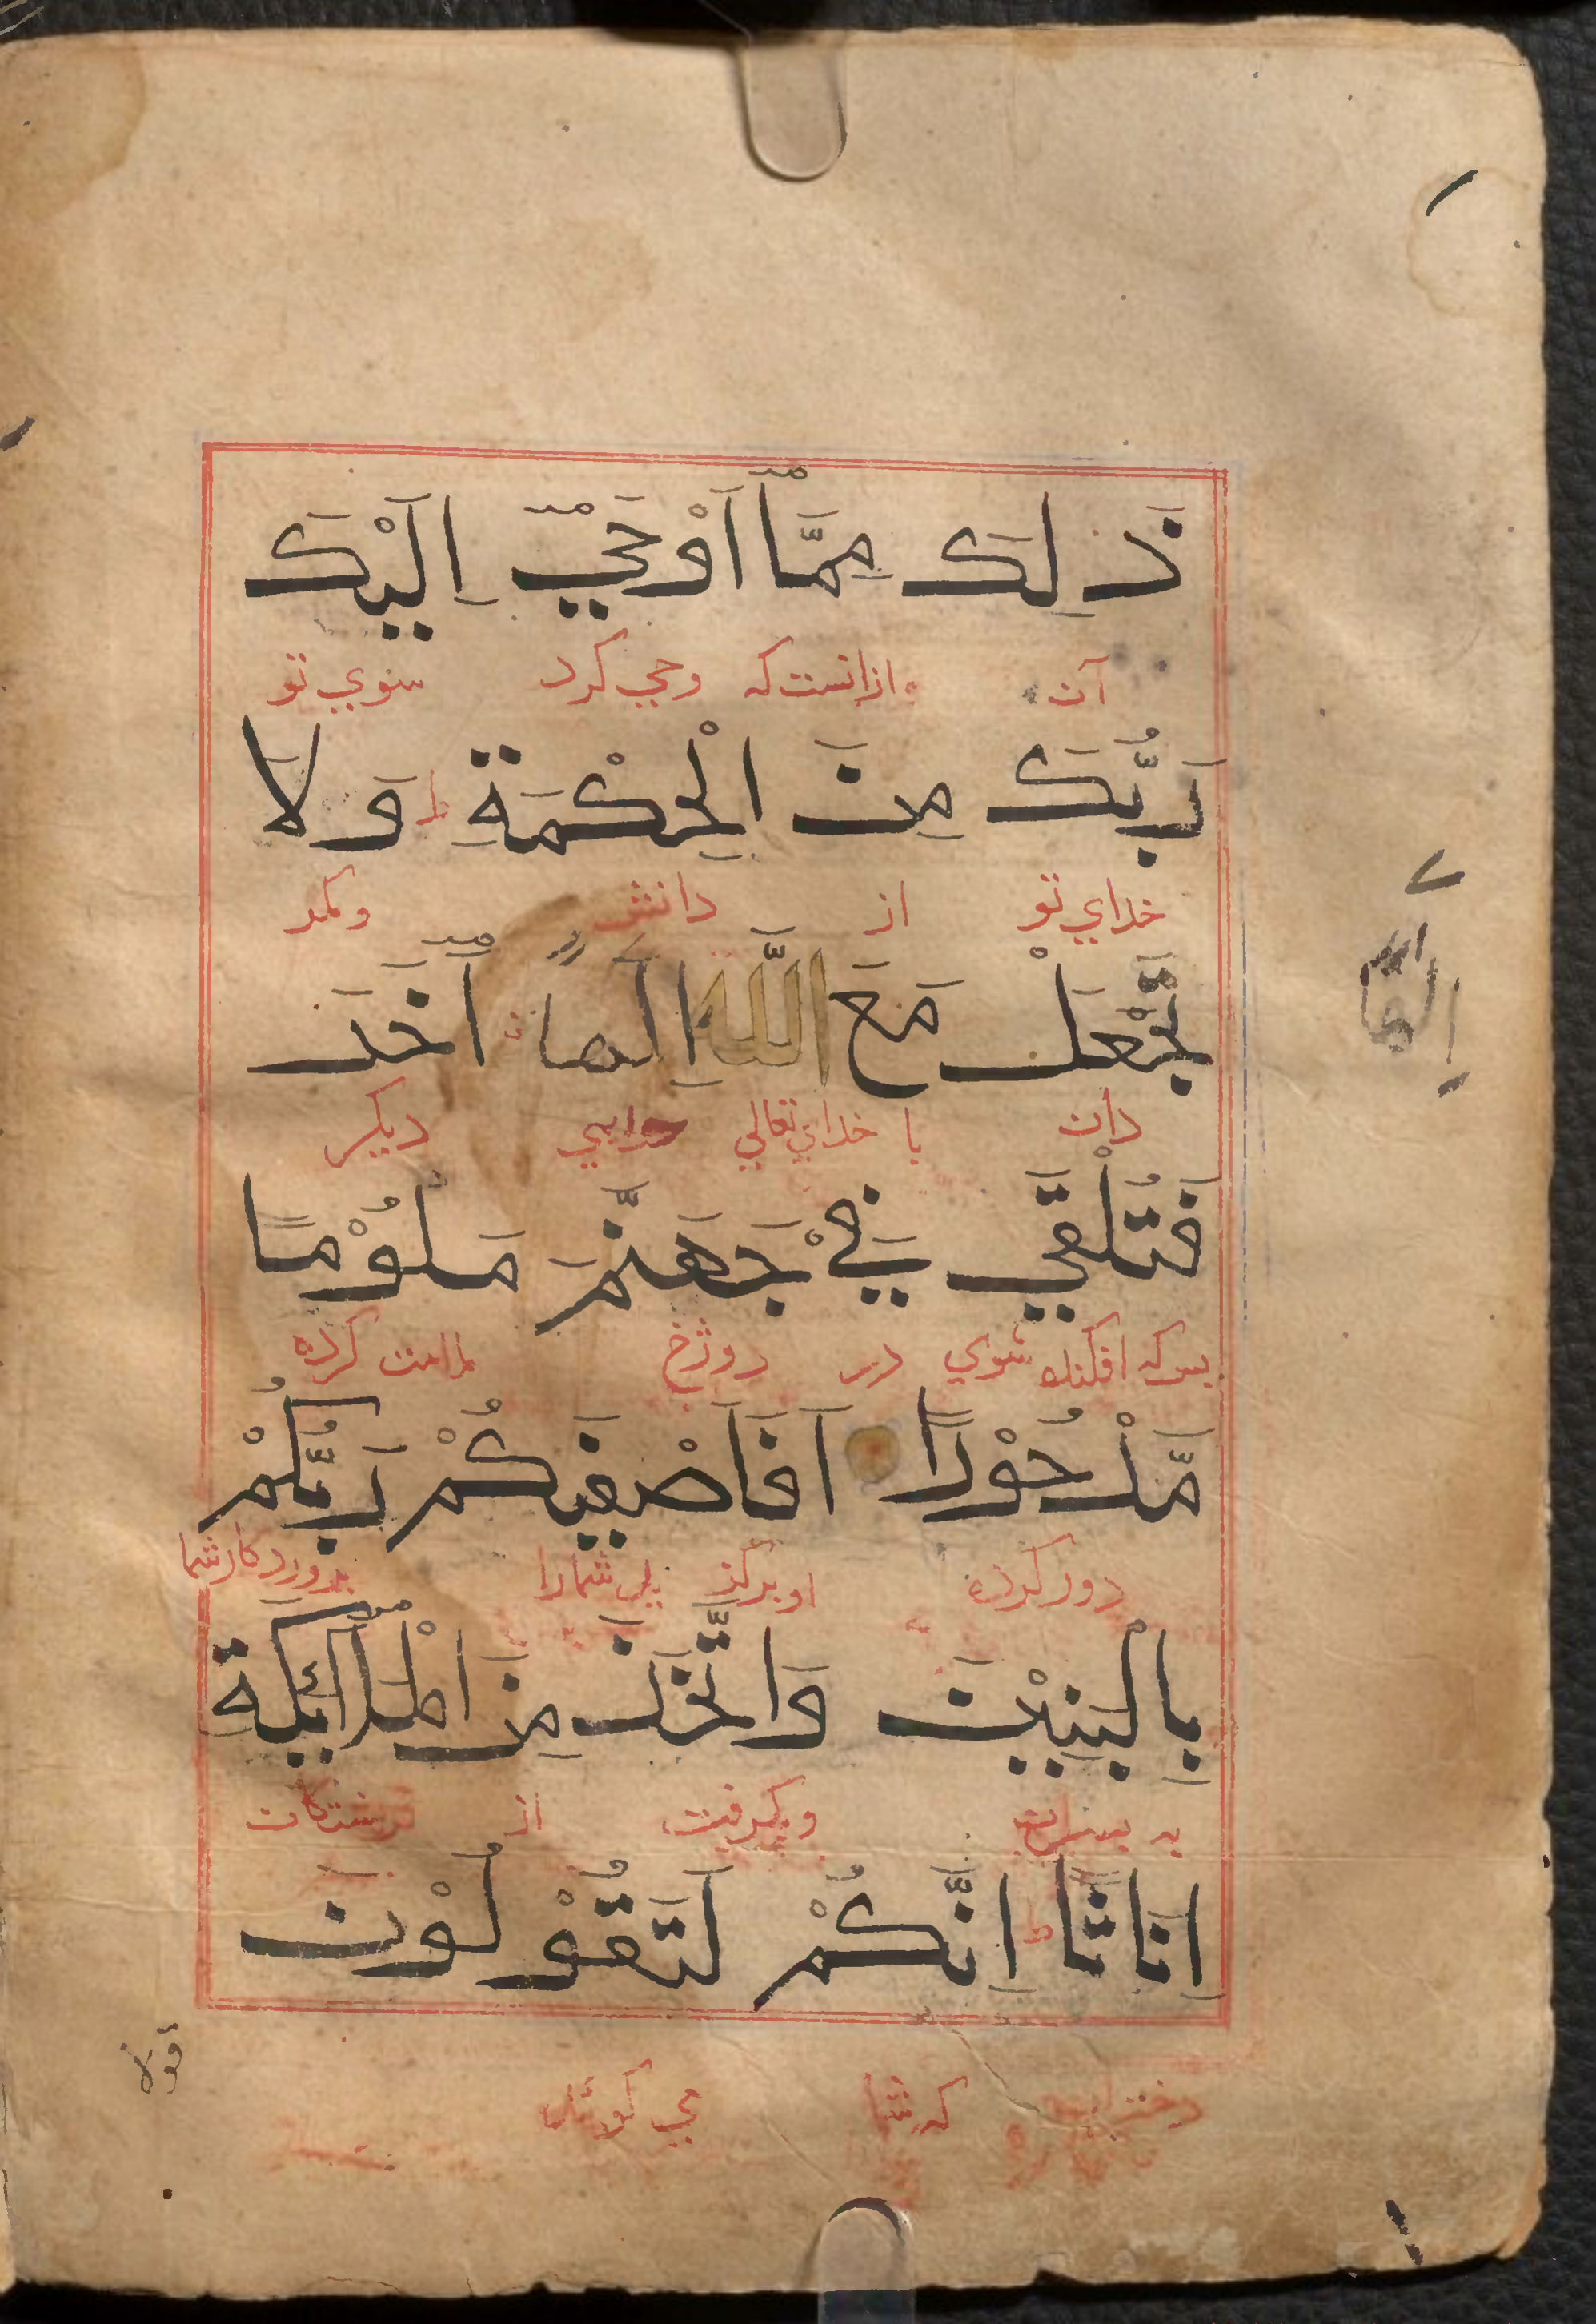 ذَلِكَ مِمَّآ اَوْحَيٓ اِلَيْكَ
آن ازانست که وحي کرد سوي تو
رَبُّكَ مِنَ الْحِكْمَةِ ط وَلَا
خداي تو از دانش ومکر
تَجْعَلْ مَعَ اللَّهِ اِلَهًا اٰخَرَ
دان با خداي تعالي خدايي ديکر
فَتُلْقَي فِيْ جَهَنَّمَ مَلُوْمًا
پس که افکنده شوي در دوزخ ملامت کرده
مَّدْحُوْرًا اَفَاَصْفَيكُمْ رَبُّكُمْ
دور کرده شمارا پروردکار شما
بِالْبَنِيْنَ وَاتَّخَذَ مِنَ الْمَلٰٓئِكَةِ
به پسران وکرفت از فرشتکان
اِنَاثًا ط اِنَّكُمْ لَتَقُوْلُوْنَ
دختران که شما مي کوئيد
قولا